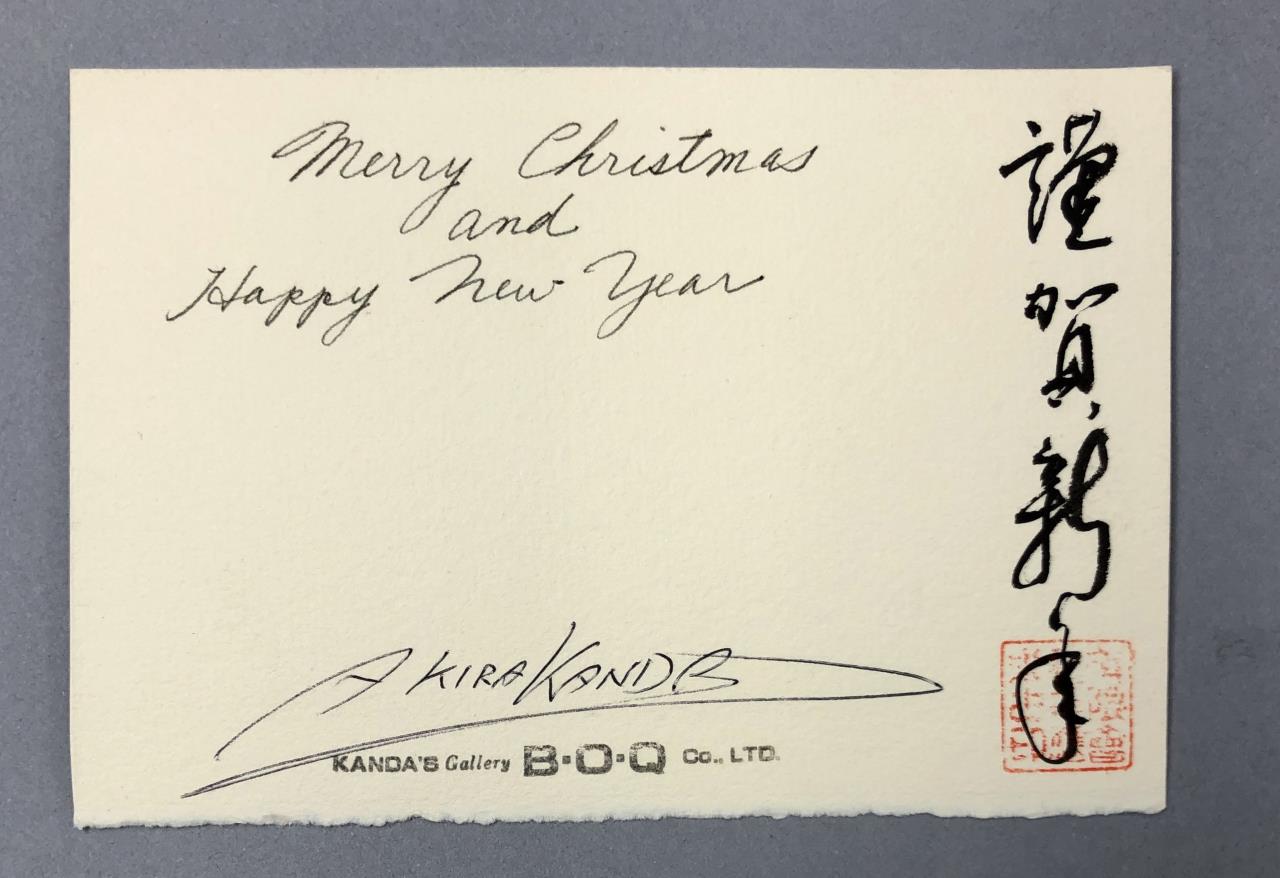 Merry Christmas
and
Happy New Year
謹賀新年
AKIRA KANDA
KANDA'S Gallery B·O·Q Co., LTD.